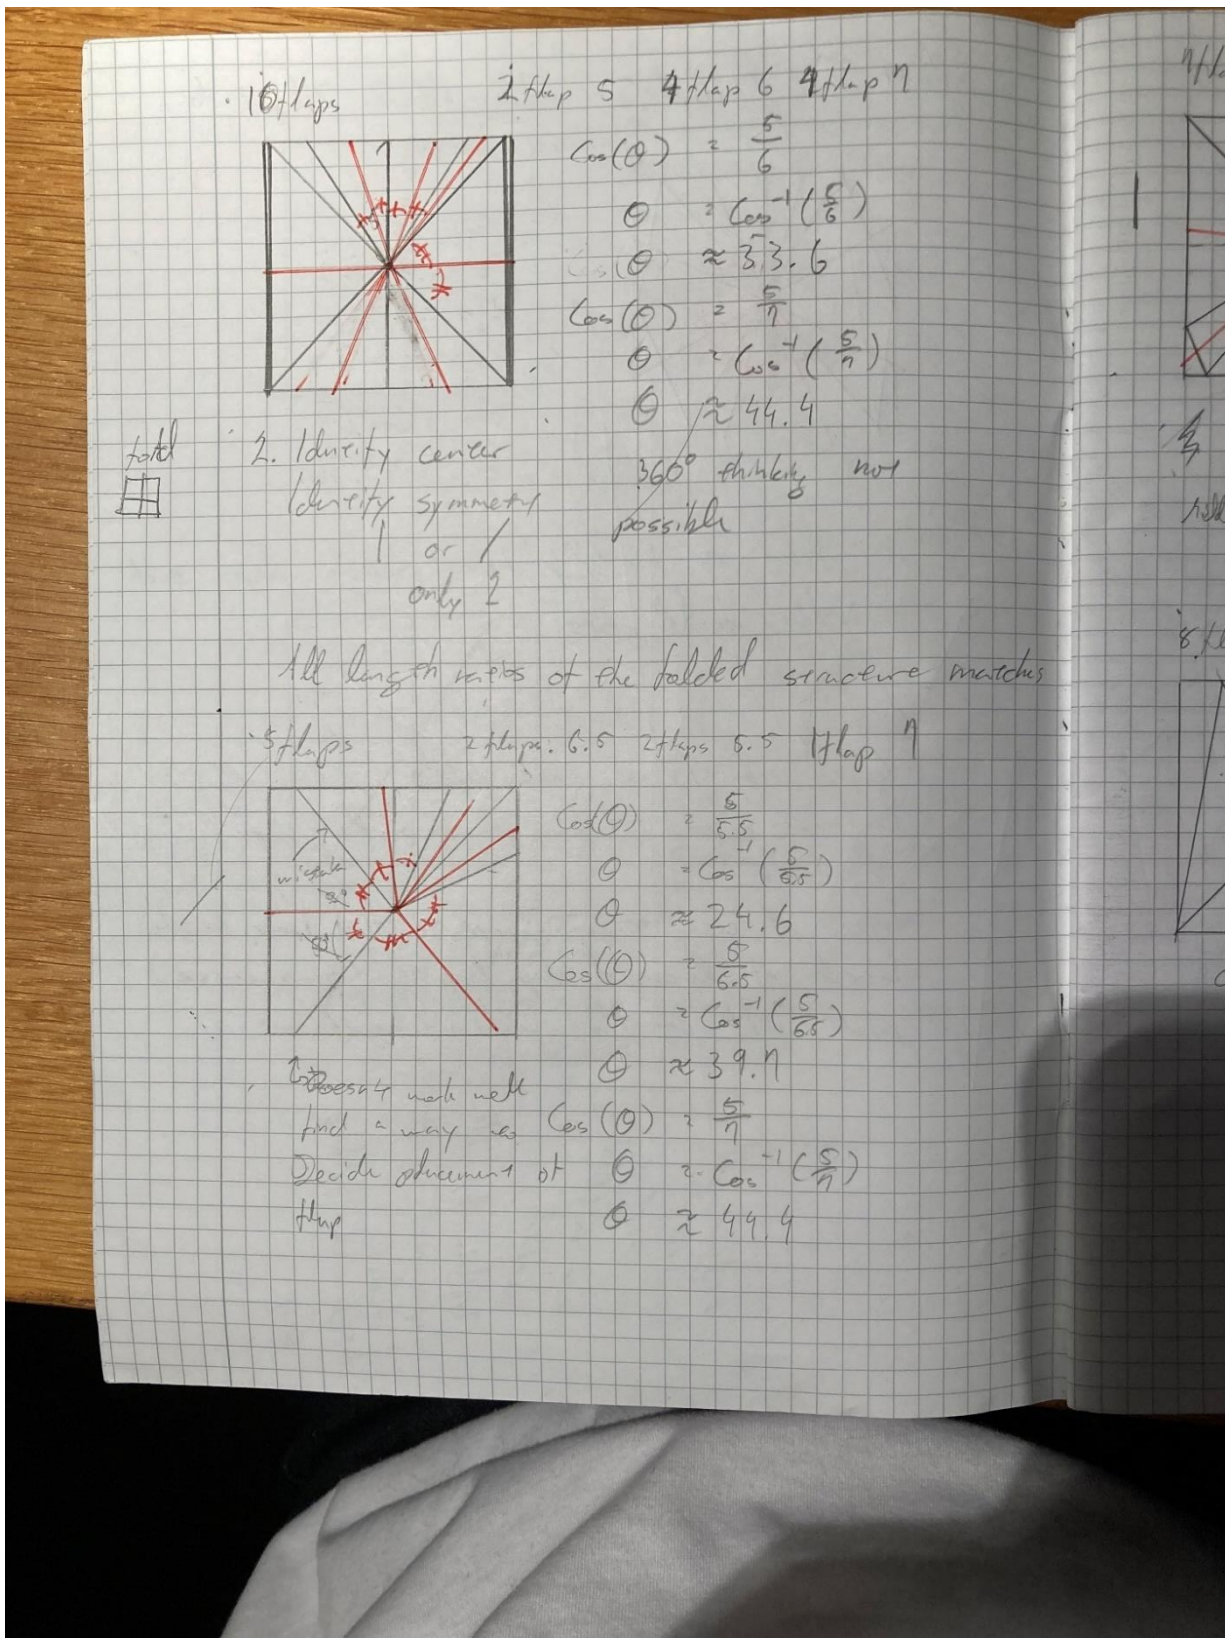 10 flaps 2 flap 5 4 flap 6 4 flap 7
Cos(θ) = 5/6
θ = Cos⁻¹(5/6)
θ ≈ 33.6
Cos(θ) = 5/7
θ = Cos⁻¹(5/7)
θ ≈ 44.4
360° thinking not
possible
2. Identify center
Identify symmetry
| or /
only 2
All length ratios of the folded structure matches
5 flaps 2 flaps. 6.5 2 flaps 5.5 1 flap 7
mistake
Cos(θ) = 5/5.5
θ = Cos⁻¹(5/5.5)
θ ≈ 24.6
Cos(θ) = 5/6.5
θ = Cos⁻¹(5/6.5)
θ ≈ 39.7
Cos(θ) = 5/7
θ = Cos⁻¹(5/7)
θ ≈ 44.4
Doesn't work well
find a way to
Decide placement of
flap